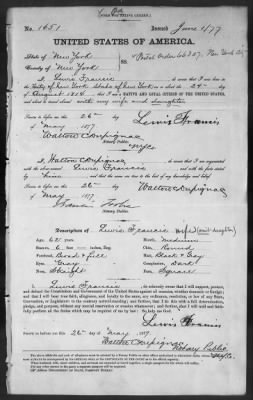 [FORM FOR NATIVE CITIZEN.]
No. 1651 Issued June 1/77
UNITED STATES OF AMERICA.
State of New York
County of New York } SS.
I, Lewis Francis
in the City of New York State of New York on the 24th day
of August 1814 that I am a NATIVE AND LOYAL CITIZEN OF THE UNITED STATES,
and about to travel abroad with my wife and daughter
Sworn to before me, this 26th day
of May 1877
Lewis Francis
Walton Dupignac
Notary Public.
I, Walton Dupignac
with the above-named Lewis Francis
Sworn to before me, this 26th day
of May 1877
Walton Dupignac
Notary Public.
Description of Lewis Francis wife (and daughter)
Age: 62 years
Mouth: Medium
Stature: 6 feet inches, Eng.
Chin: Round
Forehead: Broad & full
Hair: Black & Gray
Eyes: Gray
Complexion: Dark
Nose: Straight
Face: Square
I, Lewis Francis do solemnly swear that I will support, protect,
and defend the Constitution and Government of the United States against all enemies, whether domestic or foreign;
and that I will bear true faith, allegiance, and loyalty to the same, any ordinance, resolution, or law of any State,
Convention, or Legislature to the contrary notwithstanding; and further, that I do this with a full determination,
pledge, and purpose, without any mental reservation or evasion whatsoever; and further, that I will well and faith-
fully perform all the duties which may be required of me by law: So help me God.
Lewis Francis
Sworn to before me, this 26th day of May 1877.
Walton Dupignac
Notary Public